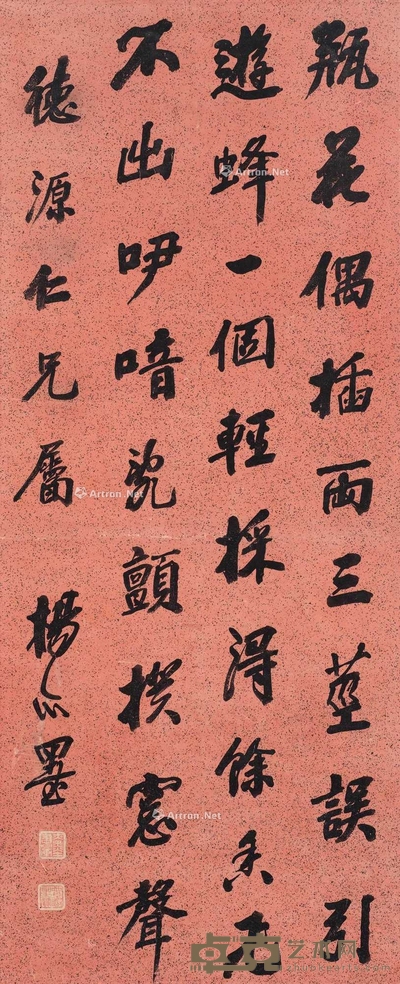 瓶花偶插兩三莖誤引
遊蜂一個輕採得餘香飛
不出咿喑顫撲窓聲
徳源仁兄屬
楊墨
Artron.Net
Artron.Net
Artron.Net
艺术网